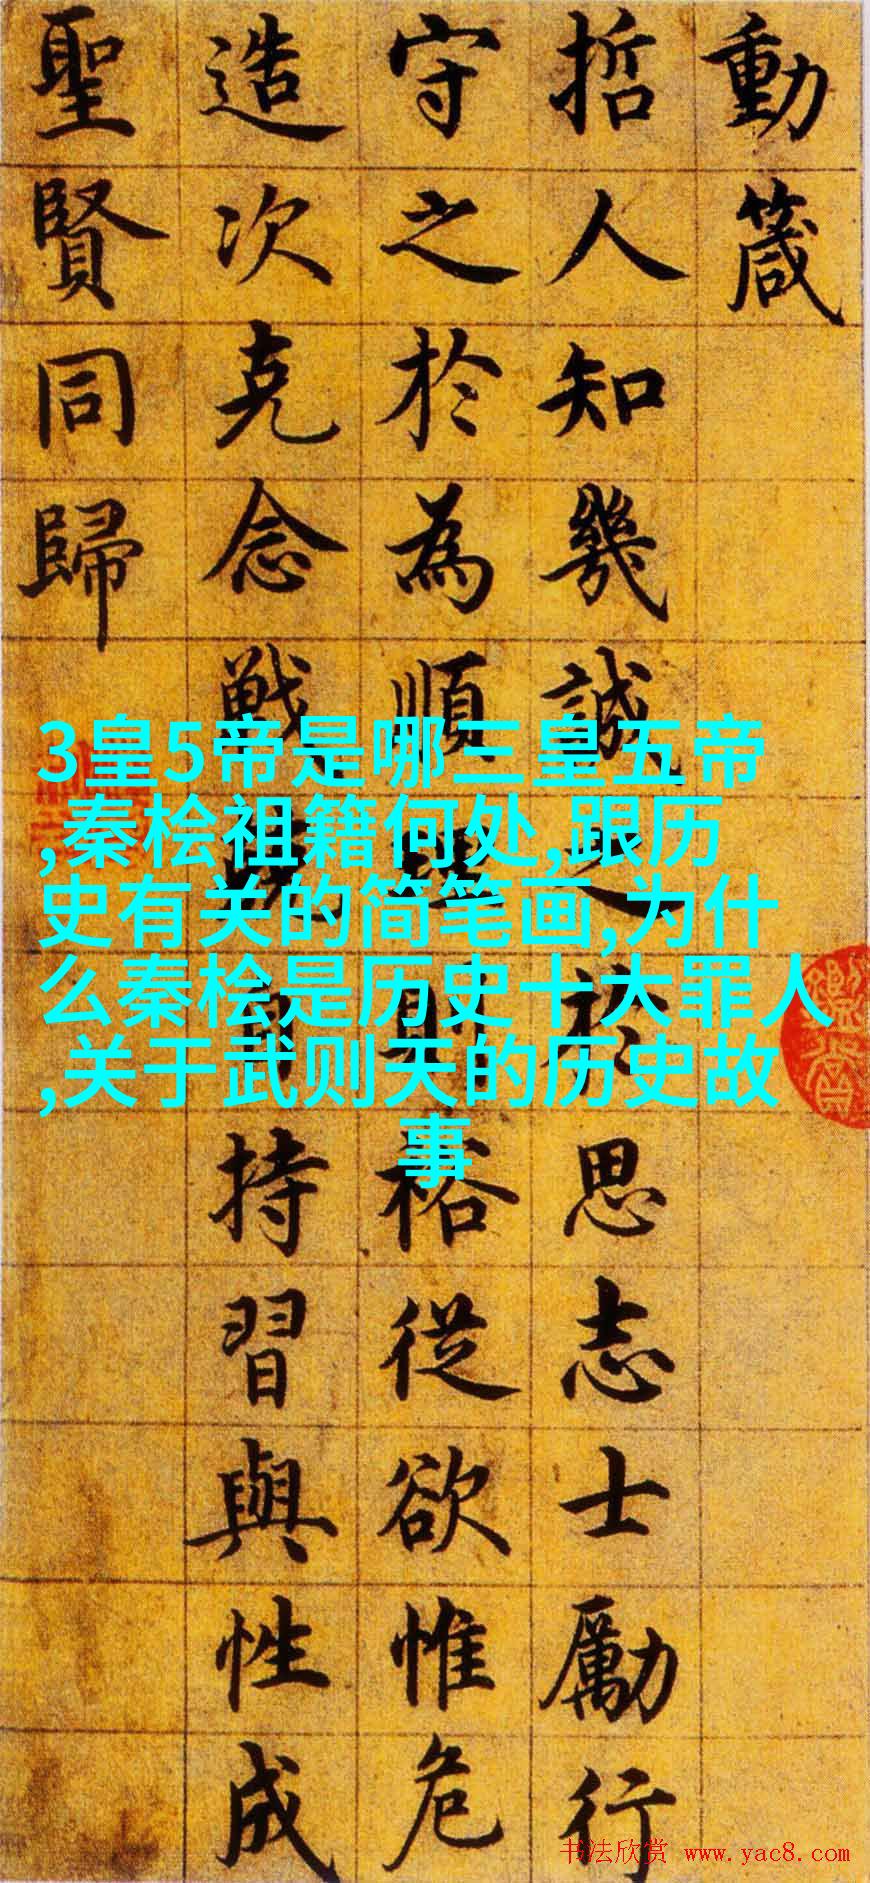 動箴
哲人知幾誠之於思志士勵行
守之於為順理則裕從欲惟危
造次克念戰兢自持習與性成
聖賢同歸
3皇5帝是哪三皇五帝
,秦桧祖籍何处,跟历
史有关的简笔画,为什
么秦桧是历史十大罪人
,关于武则天的历史故
事
书法欣赏 www.yac8.com